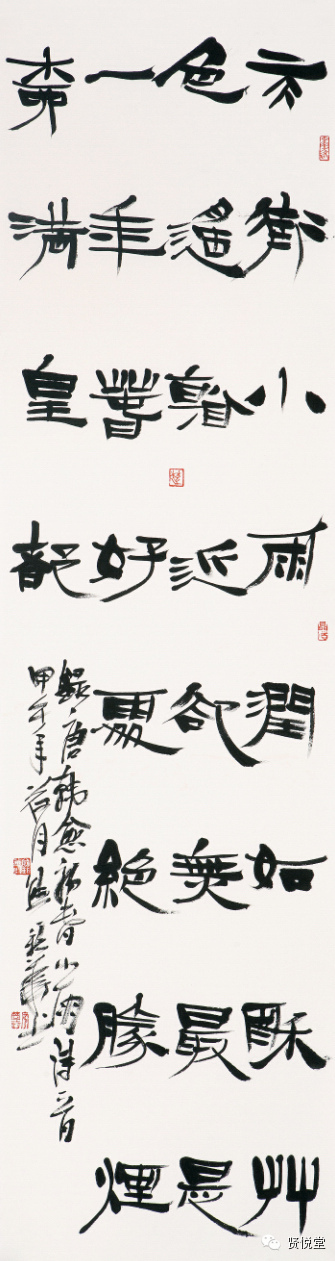 天街小雨潤如酥艸
色遙看近卻無最是
一年春好處絕勝煙
柳滿皇都
錄唐韓愈初春小雨詩一首
甲午年
贤悦堂